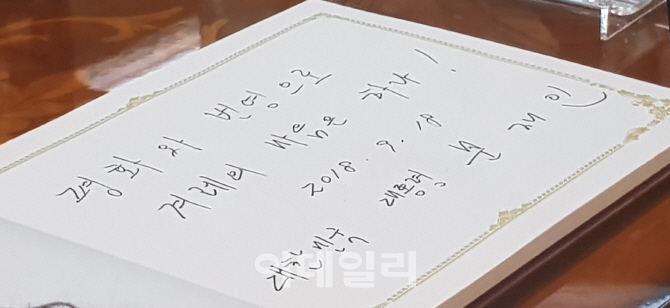 평화와 번영으로
겨레의 마음은 하나!
2018. 9. 18
대한민국 대통령 문재인
이데일리